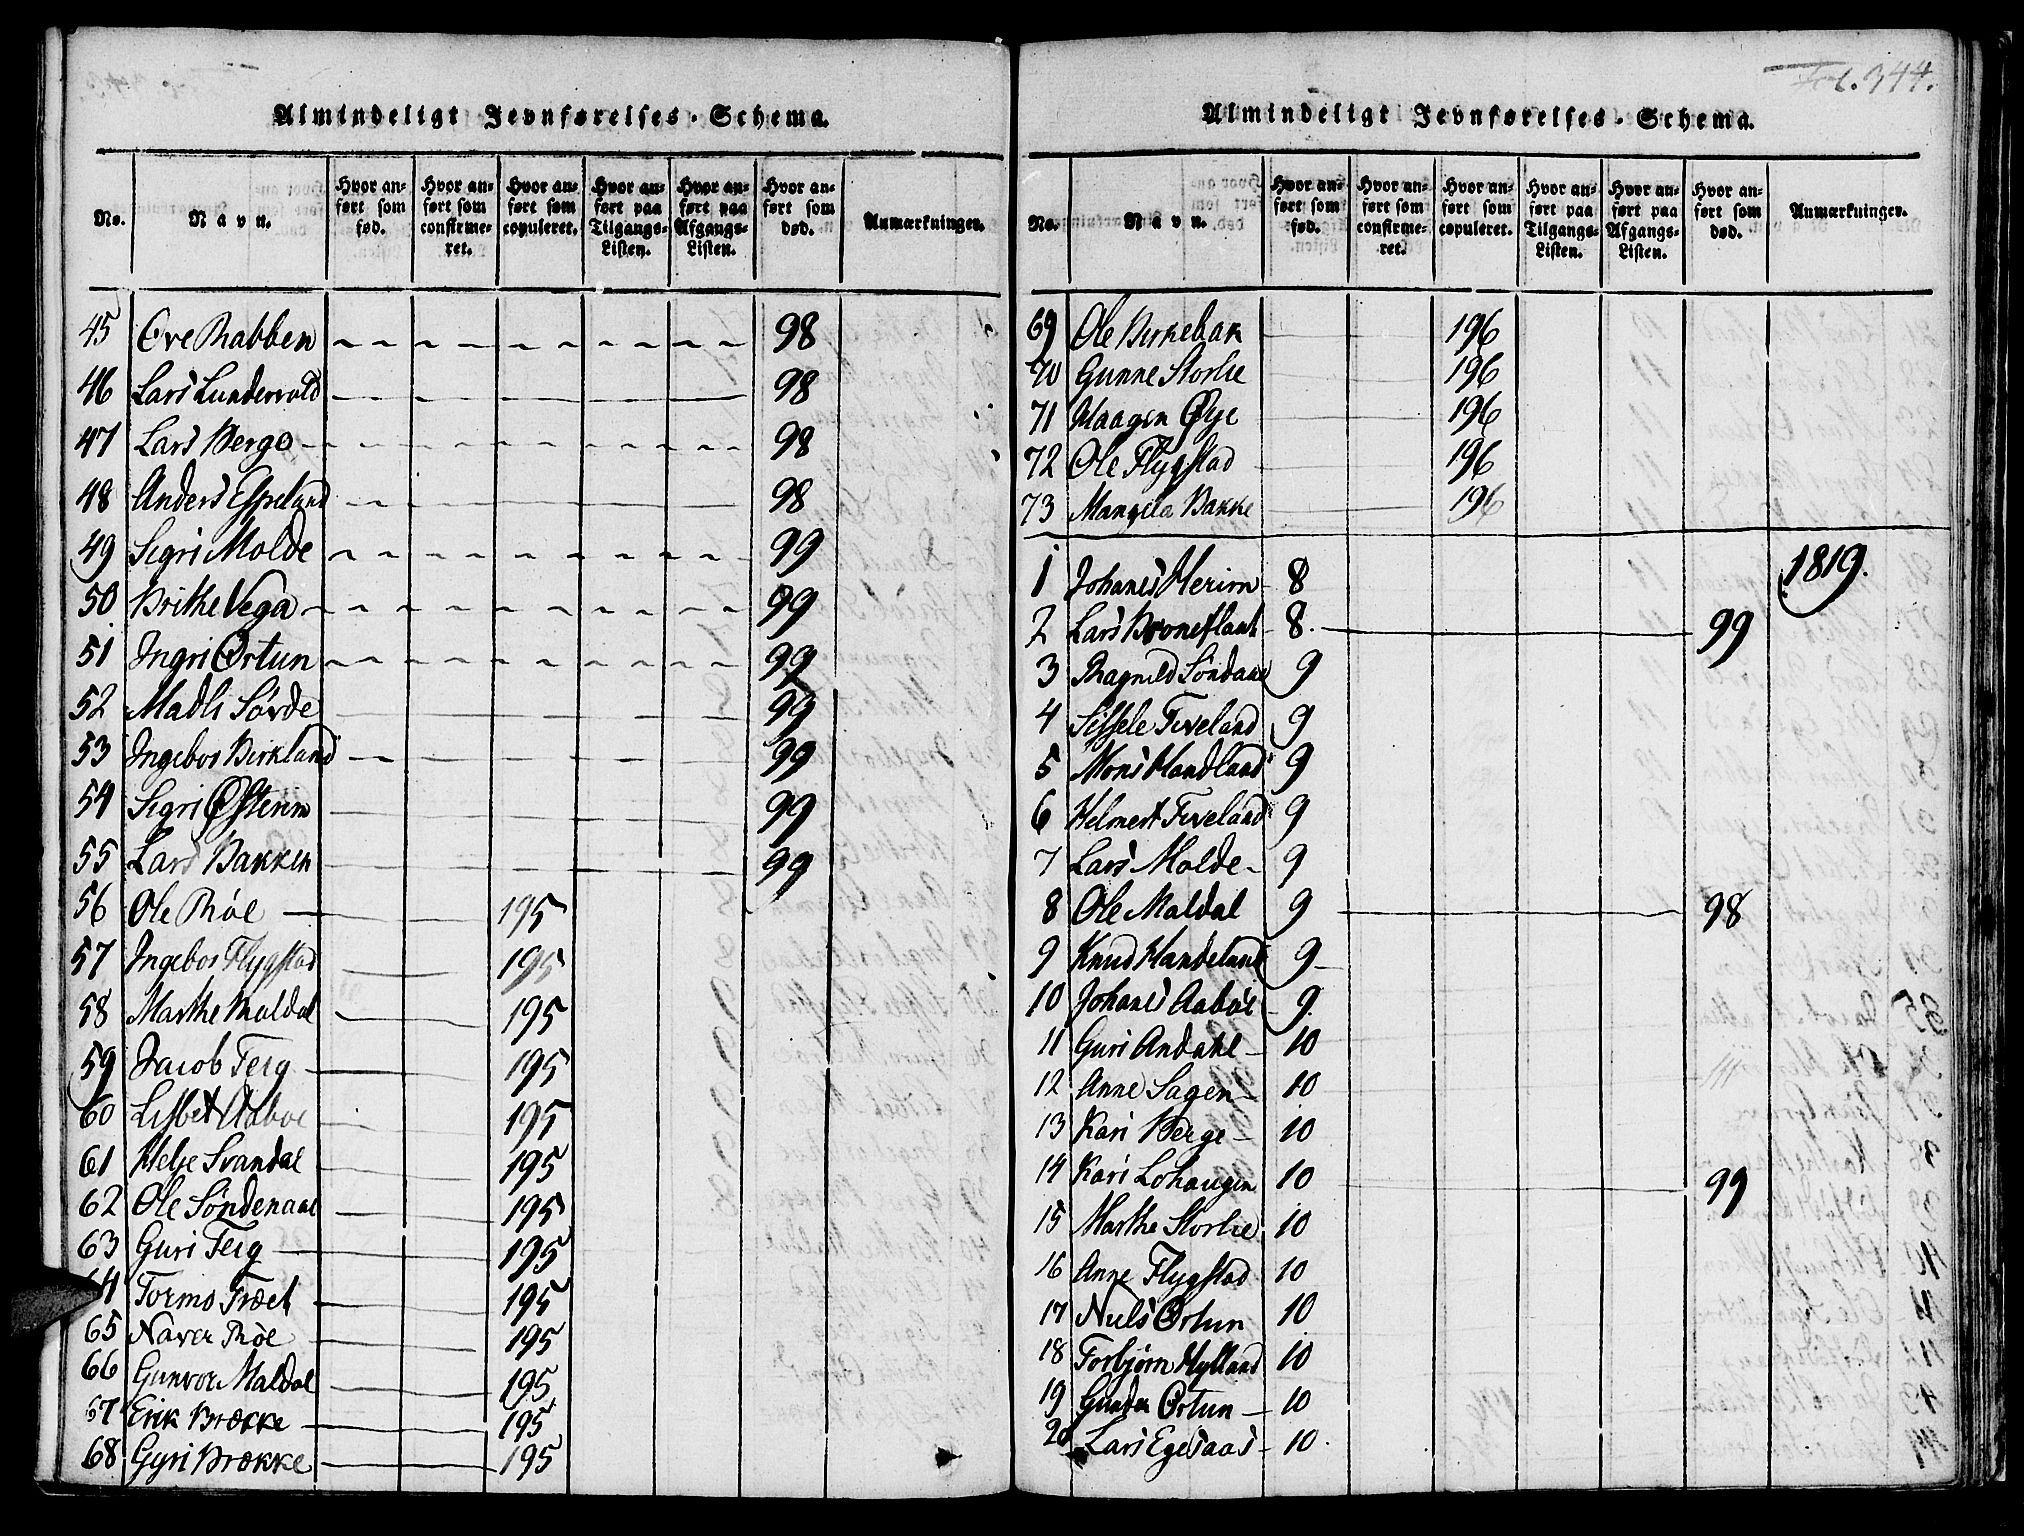 Almindeligt Jevnførelses-Schema.
No. Navn. Hvor anført som fød. Hvor anført som confirmeret. Hvor anført som copuleret. Hvor anført paa Tilgangs-Listen. Hvor anført paa Afgangs-Listen. Hvor anført som død. Anmærkninger.
45 Ove Rabben 98
46 Lars Lundervold 98
47 Lars Berge 98
48 Anders Espeland 98
49 Sigri Molde 99
50 Brithe Vega 99
51 Ingri Ortun 99
52 Madli Sørde 99
53 Ingebor Birkland 99
54 Sigri Østerim 99
55 Lars Bakken 99
56 Ole Røe 195
57 Ingebor Flygstad 195
58 Marthe Maldal 195
59 Jacob Teig 195
60 Lisbet Aaboe 195
61 Helje Svandal 195
62 Ole Søndenaae 195
63 Guri Teig 195
64 Tormo Træet 195
65 Naver Røe 195
66 Gunvor Maldal 195
67 Erik Brække 195
68 Gyri Brække 195
Fol. 344.
Almindeligt Jevnførelses-Schema.
No. Navn. Hvor anført som fød. Hvor anført som confirmeret. Hvor anført som copuleret. Hvor anført paa Tilgangs-Listen. Hvor anført paa Afgangs-Listen. Hvor anført som død. Anmærkninger.
69 Ole Birkebak 196
70 Gunne Storlie 196
71 Haagen Øye 196
72 Ole Flygstad 196
73 Bakke 196
1819.
1 Johanes Herim 8
2 Lars Broneflaat 8. 99
3 Ragnild Søndaae 9
4 Sissele Tveland 9
5 Mons Handland 9
6 Helmert Tveland 9
7 Lars Molde 9
8 Ole Maldal 9 98
9 Knud Handeland 9
10 Johanes Aabøe 9
11 Guri Andahl 10
12 Anne Sagen 10
13 Kari Berge 10
14 Kari Lohaugen 10 99
15 Marthe Storlie 10
16 Anne Flygstad 10
17 Niels Ortun 10
18 Torbjørn Hylland 10
19 Gunder Ortun 10
20 Lars Egesaas 10